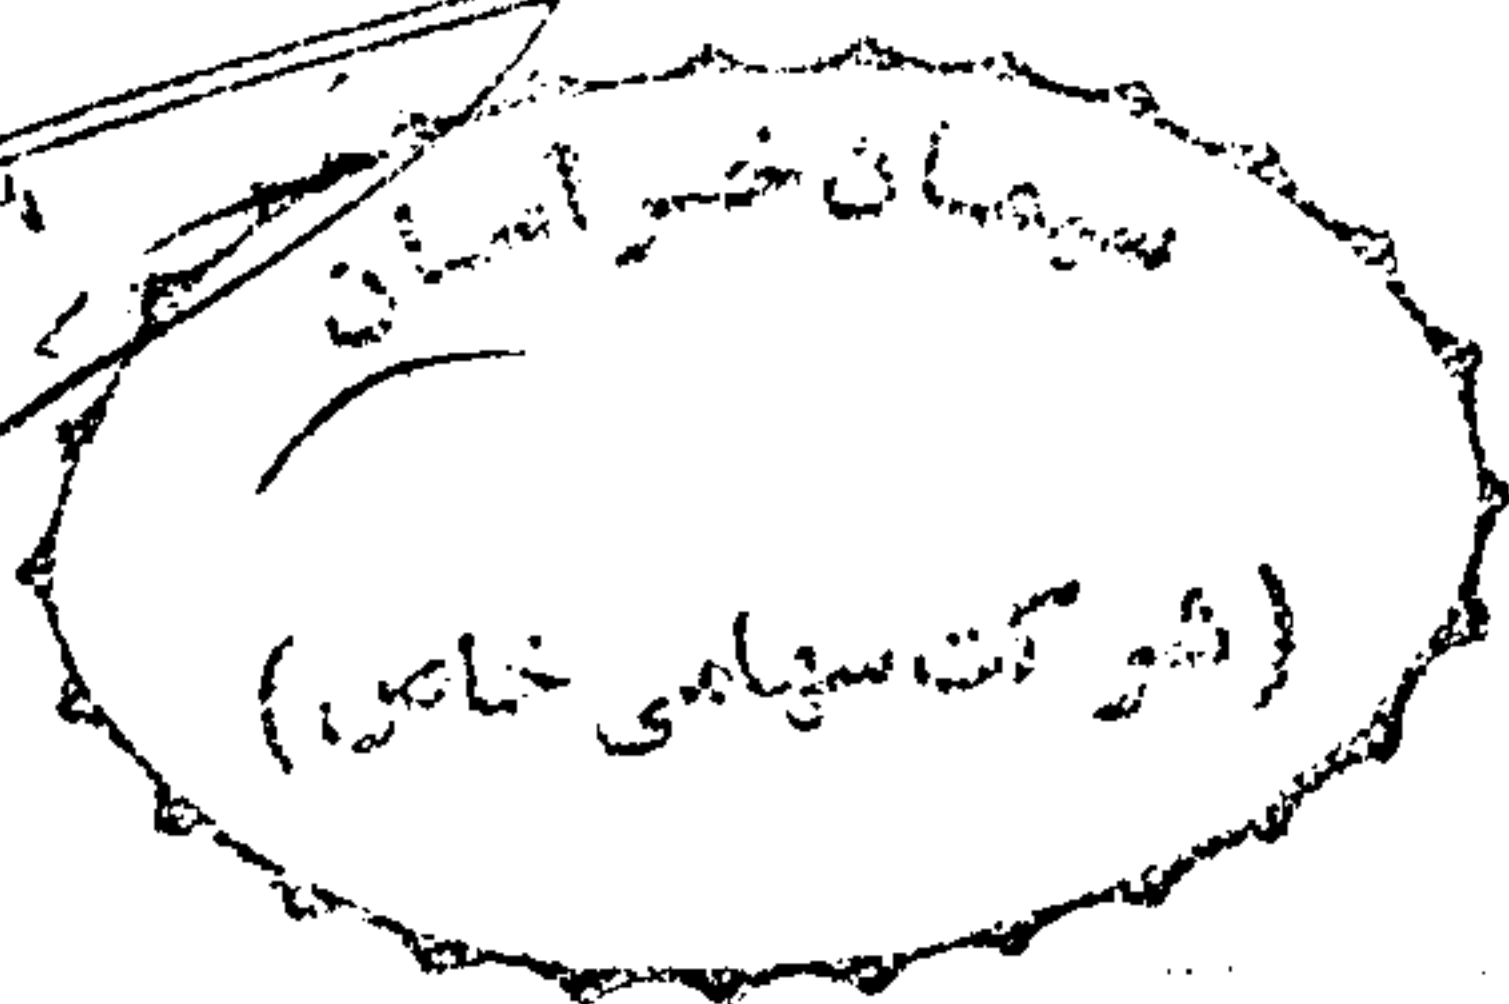 سیمان خراسان
(شرکت سهامی خاص)